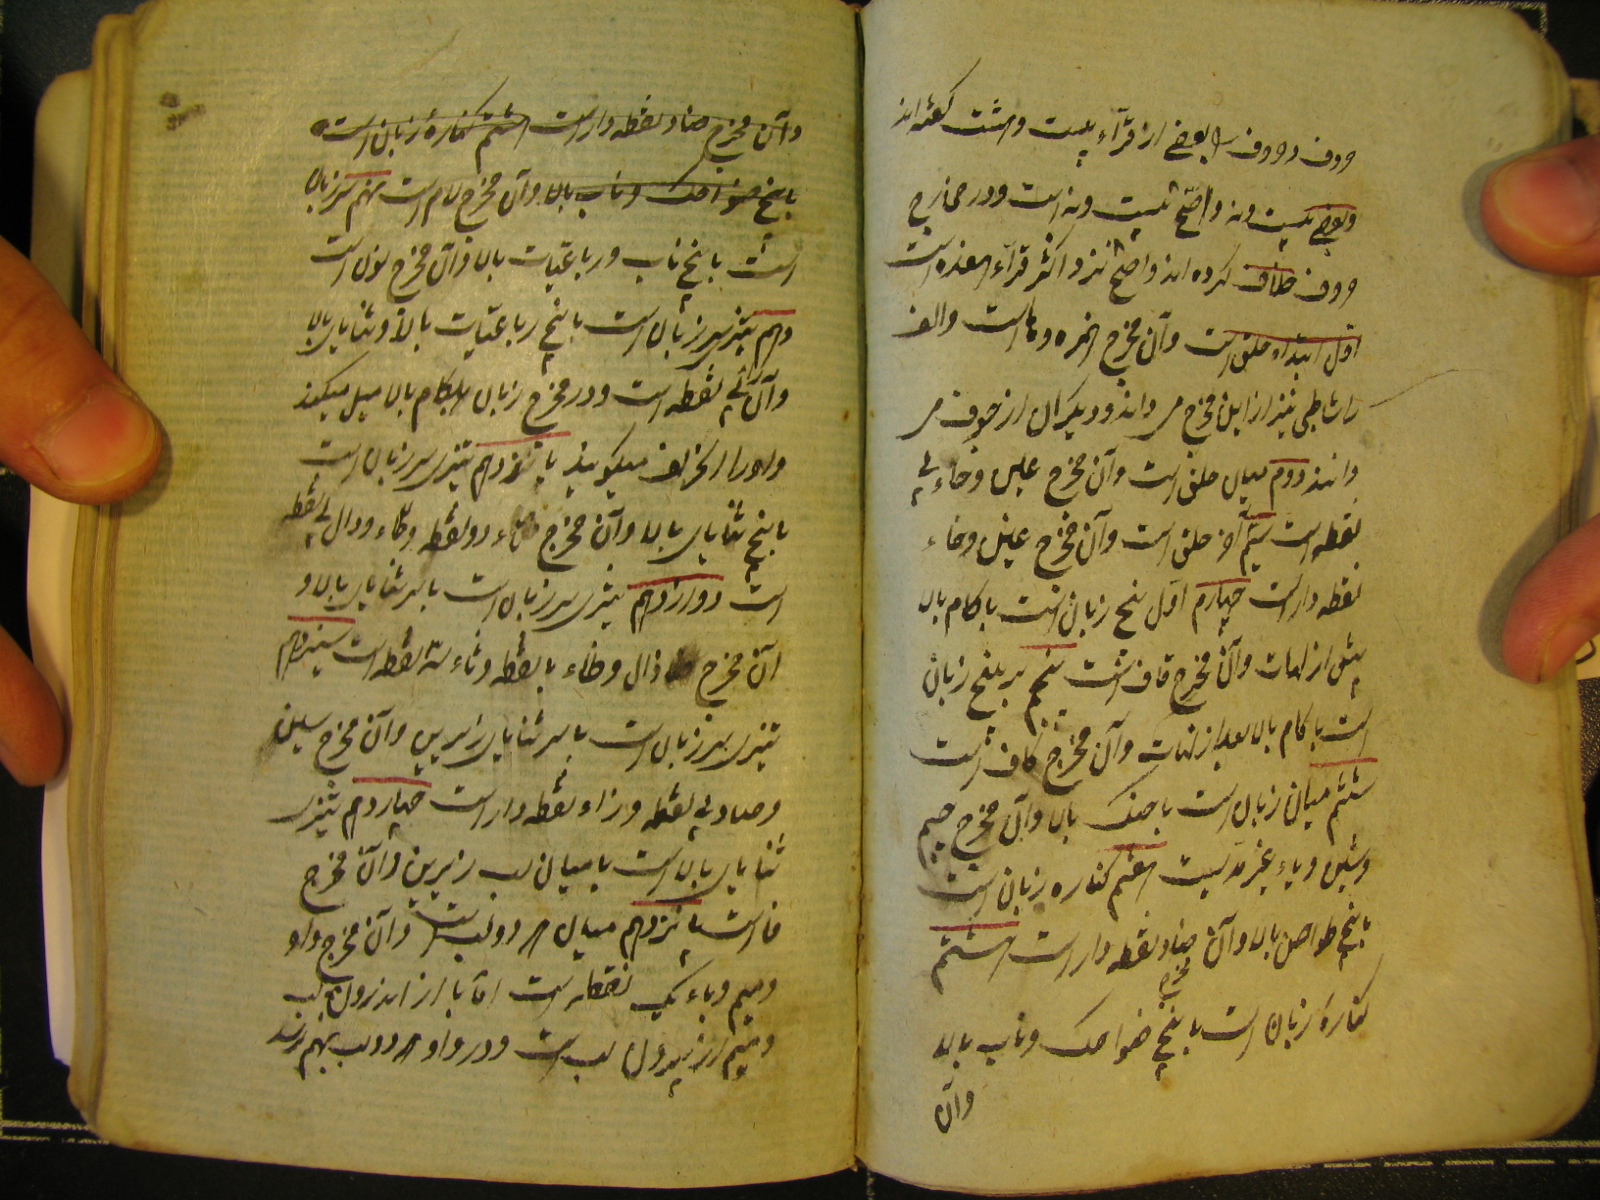 حروف و حروف را بعضی از قرّآء بیست و هشت گفته‌اند
و بعضی بیست و نه و اصّح بیست و نه است و در مخارج
حروف خلاف کرده‌اند و اصّح نزد اکثر قرّآء هفده است
اوّل ابتداء حلق است و آن مخرج همزه و ها است و الف
را شاطبی نیز از این مخرج می داند و دیگران از جوف می
دانند دوم میان حلق است و آن مخرج عین و حاء بی
نقطه است سیّم آخر حلق است و آن مخرج غین و خاء
نقطه دار است چهارم اول بیخ زبان است با کام بالا
پیش از لهات و آن مخرج قاف است پنجم بر بیخ زبان
است با کام بالا بعد از لهات و آن مخرج کاف است
ششم میان زبان است با حنک بالا و آن مخرج جیم
و شین و یاء غیر مدّیست هفتم کناره زبان است
با بیخ طواحن بالا و آن مخرج ضاد نقطه دار است هشتم
کنارهٔ زبان است با بیخ ضواحک و ناب بالا
و آن
و آن مخرج ضاد نقطه دار است هشتم کنارهٔ زبان است
با بیخ ضواحک و ناب بالا و آن مخرج لام است نهم سر زبان
است با بیخ ناب و رباعیّات بالا و آن مخرج نون است
دهم تیزی سر زبان است با بیخ رباعیّات بالا و ثنایای بالا
و آن رای بی نقطه است و در مخرج زبان بکام بالا میل میکند
و او را منحرف میگویند یازدهم تیزی سر زبان است
با بیخ ثنایای بالا و آن مخرج تاء دو نقطه و طاء و دال بی نقطه
است دوازدهم تیزی سر زبان است با سر ثنایای بالا و
آن مخرج ذال و ظاء با نقطه و ثاء سه نقطه است سیزدهم
تیزی سر زبان است با سر ثنایای زیرین و آن مخرج سین
و صاد بی نقطه و زاء نقطه دار است چهاردهم تیزی
ثنایای بالا است با میان لب زیرین و آن مخرج
فا است پانزدهم میان هر دو لب است و آن مخرج واو
و میم و باء یک نقطه است امّا با از اندرون لب
و میم از بیرون لب است و در واو هر دو لب بهم نرسد